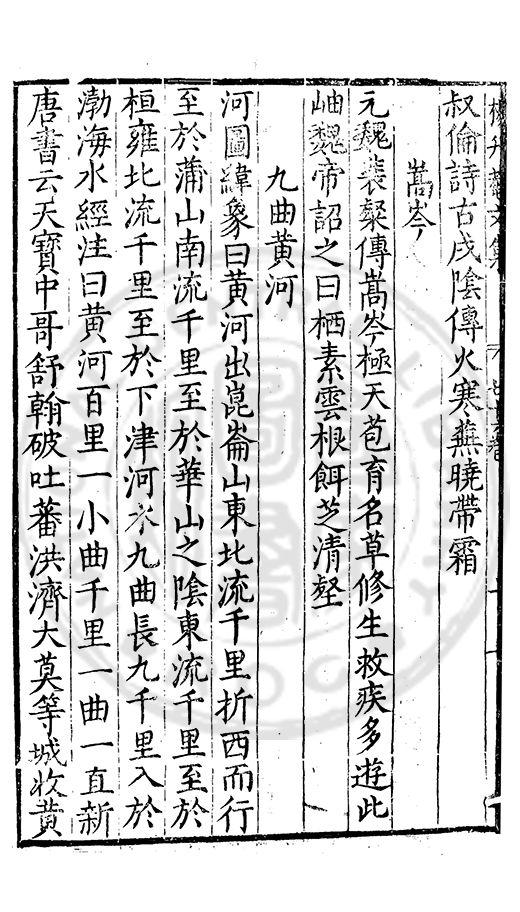 升菴文集 七十六卷
叔倫詩古戍陰傳火寒蕪曉帶霜
嵩岑
元魏裴粲傳嵩岑極天苞育名草修生救疾多遊此
岫魏帝詔之曰栖素雲根餌芝清壑
九曲黃河
河圖緯象曰黃河出崑崙山東北流千里折西而行
至於蒲山南流千里至於華山之陰東流千里至於
桓雍北流千里至於下津河水九曲長九千里入於
渤海水經注曰黃河百里一小曲千里一曲一直新
唐書云天寶中哥舒翰破吐蕃洪濟大莫等城收黃